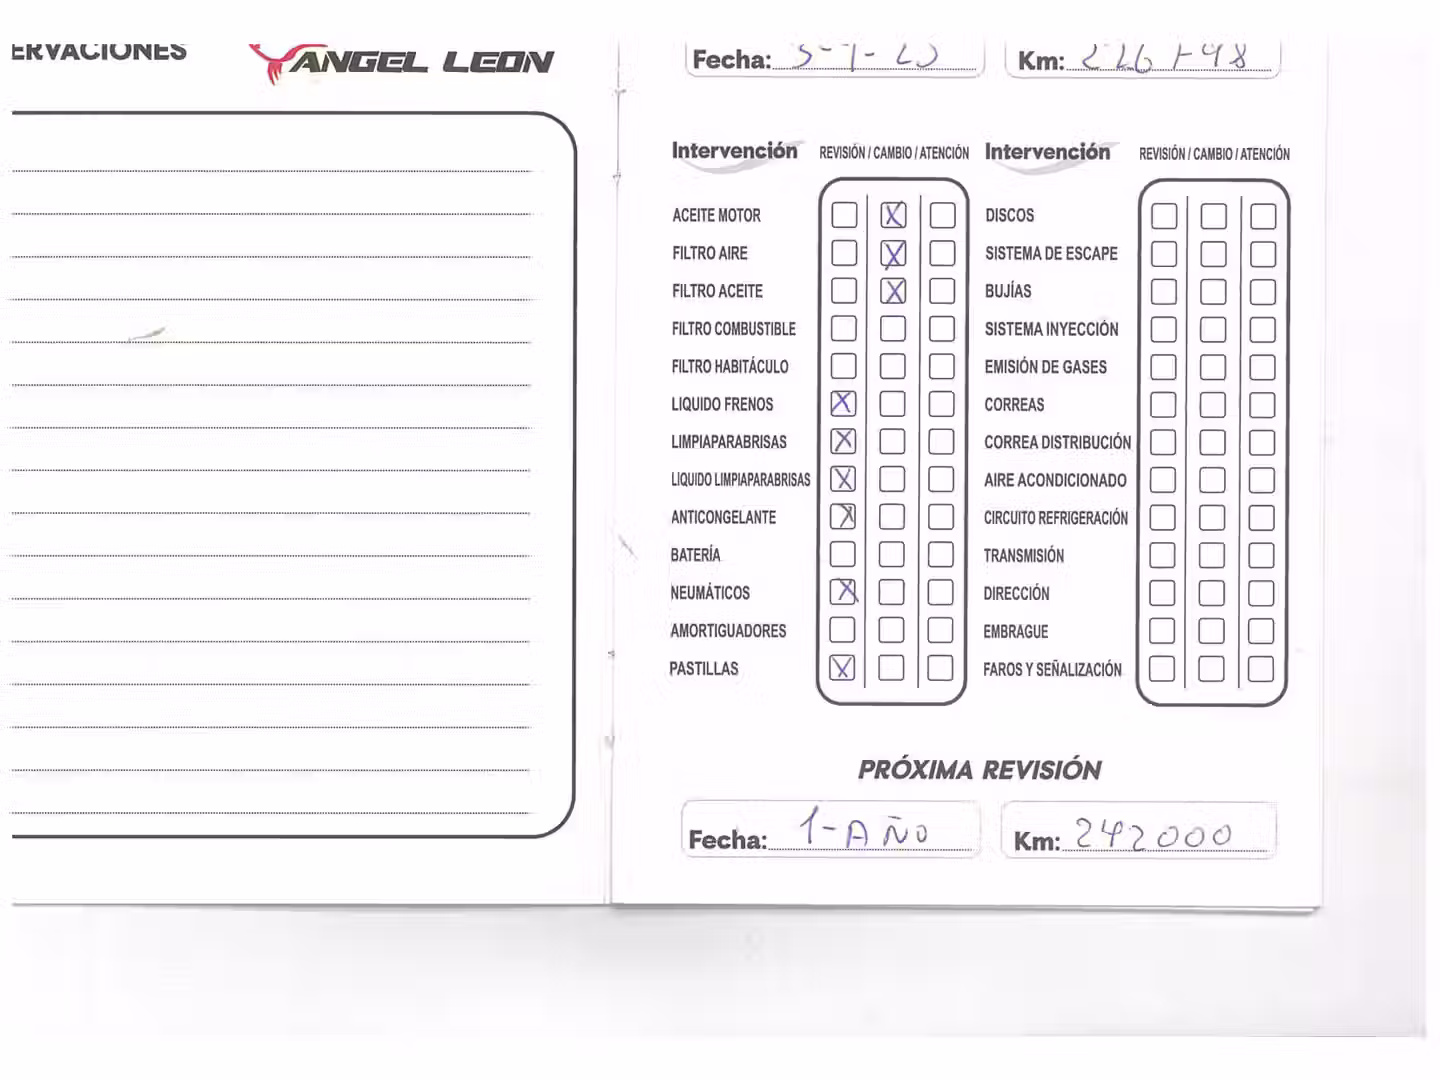 ERVACIONES
ANGEL LEON
Fecha: Km:
Intervención REVISIÓN / CAMBIO / ATENCIÓN
ACEITE MOTOR X
FILTRO AIRE X
FILTRO ACEITE X
FILTRO COMBUSTIBLE
FILTRO HABITÁCULO
LIQUIDO FRENOS X
LIMPIAPARABRISAS X
LIQUIDO LIMPIAPARABRISAS X
ANTICONGELANTE X
BATERÍA
NEUMÁTICOS X
AMORTIGUADORES
PASTILLAS X
Intervención REVISIÓN / CAMBIO / ATENCIÓN
DISCOS
SISTEMA DE ESCAPE
BUJÍAS
SISTEMA INYECCIÓN
EMISIÓN DE GASES
CORREAS
CORREA DISTRIBUCIÓN
AIRE ACONDICIONADO
CIRCUITO REFRIGERACIÓN
TRANSMISIÓN
DIRECCIÓN
EMBRAGUE
FAROS Y SEÑALIZACIÓN
PRÓXIMA REVISIÓN
Fecha: 1-AÑO Km: 242000